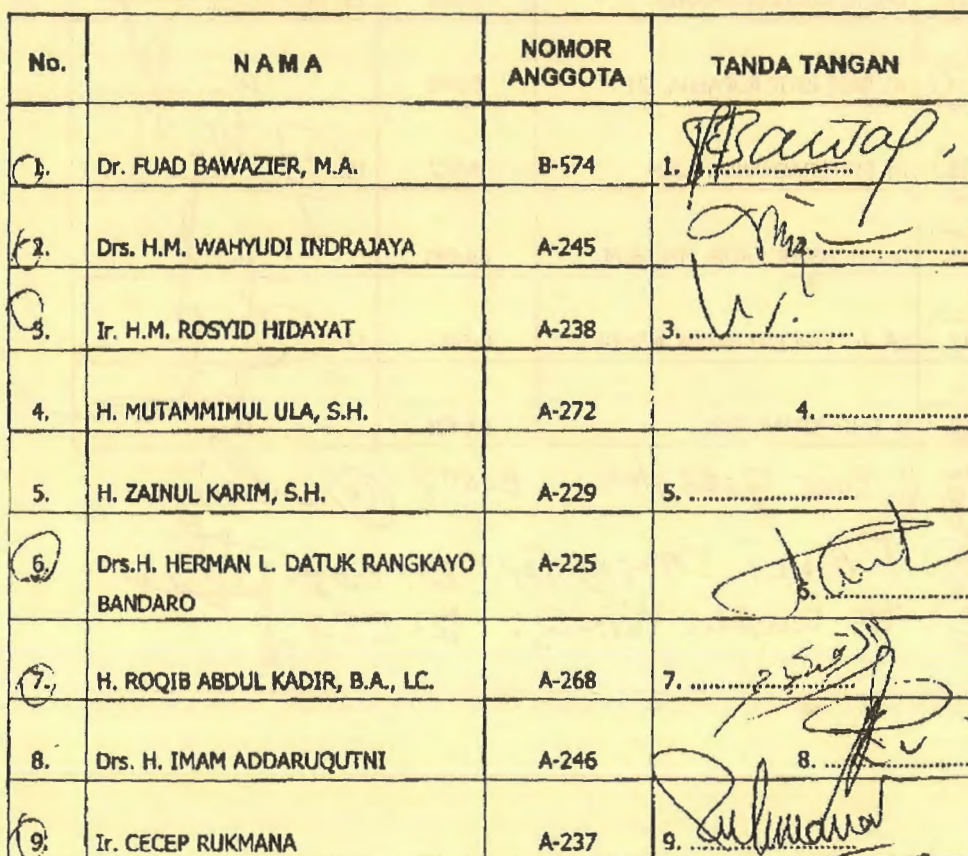 No. NAMA NOMOR ANGGOTA TANDA TANGAN
1. Dr. FUAD BAWAZIER, M.A. B-574 1. ................
2. Drs. H.M. WAHYUDI INDRAJAYA A-245 2. ................
3. Ir. H.M. ROSYID HIDAYAT A-238 3. ................
4. H. MUTAMMIMUL ULA, S.H. A-272 4. ................
5. H. ZAINUL KARIM, S.H. A-229 5. ................
6. Drs.H. HERMAN L. DATUK RANGKAYO A-225 6. ................
BANDARO
7. H. ROQIB ABDUL KADIR, B.A., LC. A-268 7. ................
8. Drs. H. IMAM ADDARUQUTNI A-246 8. ................
9. Ir. CECEP RUKMANA A-237 9. ................